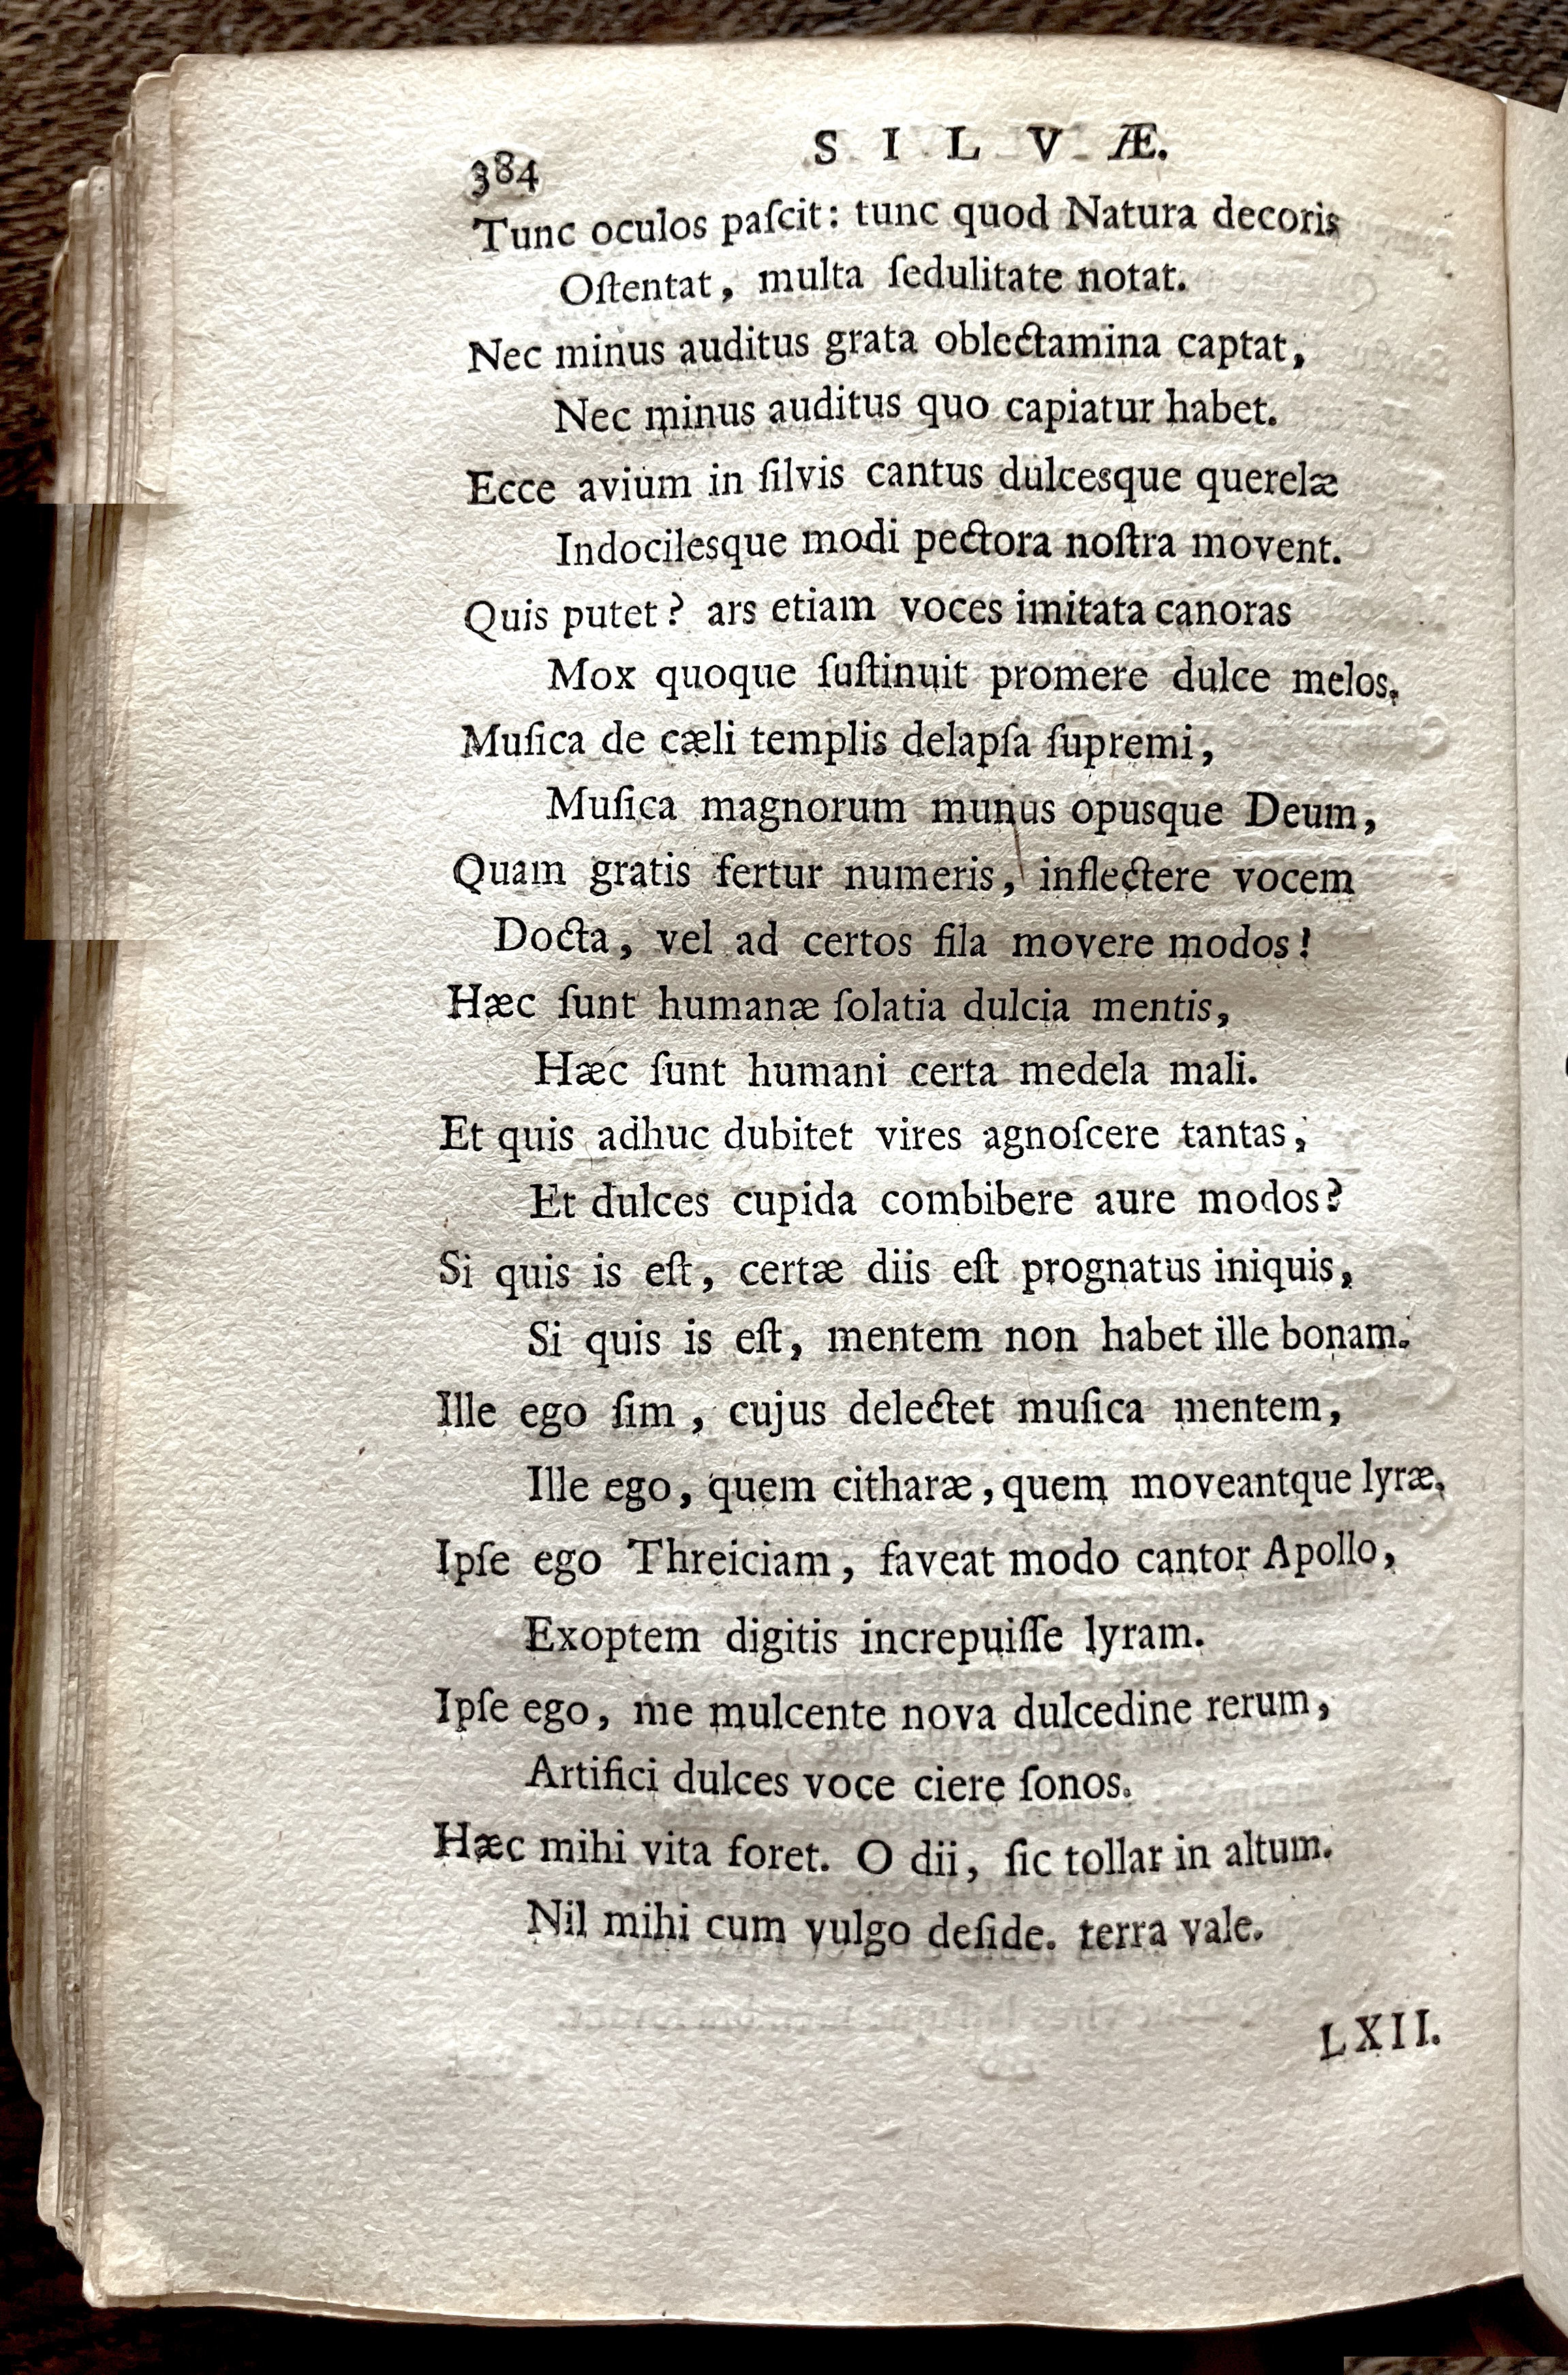 384 SILVÆ.
Tunc oculos paſcit: tunc quod Natura decoris
Oſtentat, multa ſedulitate notat.
Nec minus auditus grata oblectamina captat,
Nec minus auditus quo capiatur habet.
Ecce avium in ſilvis cantus dulcesque querelæ
Indocilesque modi pectora noſtra movent.
Quis putet? ars etiam voces imitata canoras
Mox quoque ſuſtinuit promere dulce melos.
Muſica de cæli templis delapſa ſupremi,
Muſica magnorum munus opusque Deum,
Quam gratis fertur numeris, inflectere vocem
Docta, vel ad certos fila movere modos!
Hæc ſunt humanæ ſolatia dulcia mentis,
Hæc ſunt humani certa medela mali.
Et quis adhuc dubitet vires agnoſcere tantas,
Et dulces cupida combibere aure modos?
Si quis is eſt, certæ diis eſt prognatus iniquis,
Si quis is eſt, mentem non habet ille bonam.
Ille ego ſim, cujus delectet muſica mentem,
Ille ego, quem citharæ, quem moveantque lyræ.
Ipſe ego Threiciam, faveat modo cantor Apollo,
Exoptem digitis increpuiſſe lyram.
Ipſe ego, me mulcente nova dulcedine rerum,
Artifici dulces voce ciere ſonos.
Hæc mihi vita foret. O dii, ſic tollar in altum.
Nil mihi cum vulgo deſide. terra vale.
LXII.